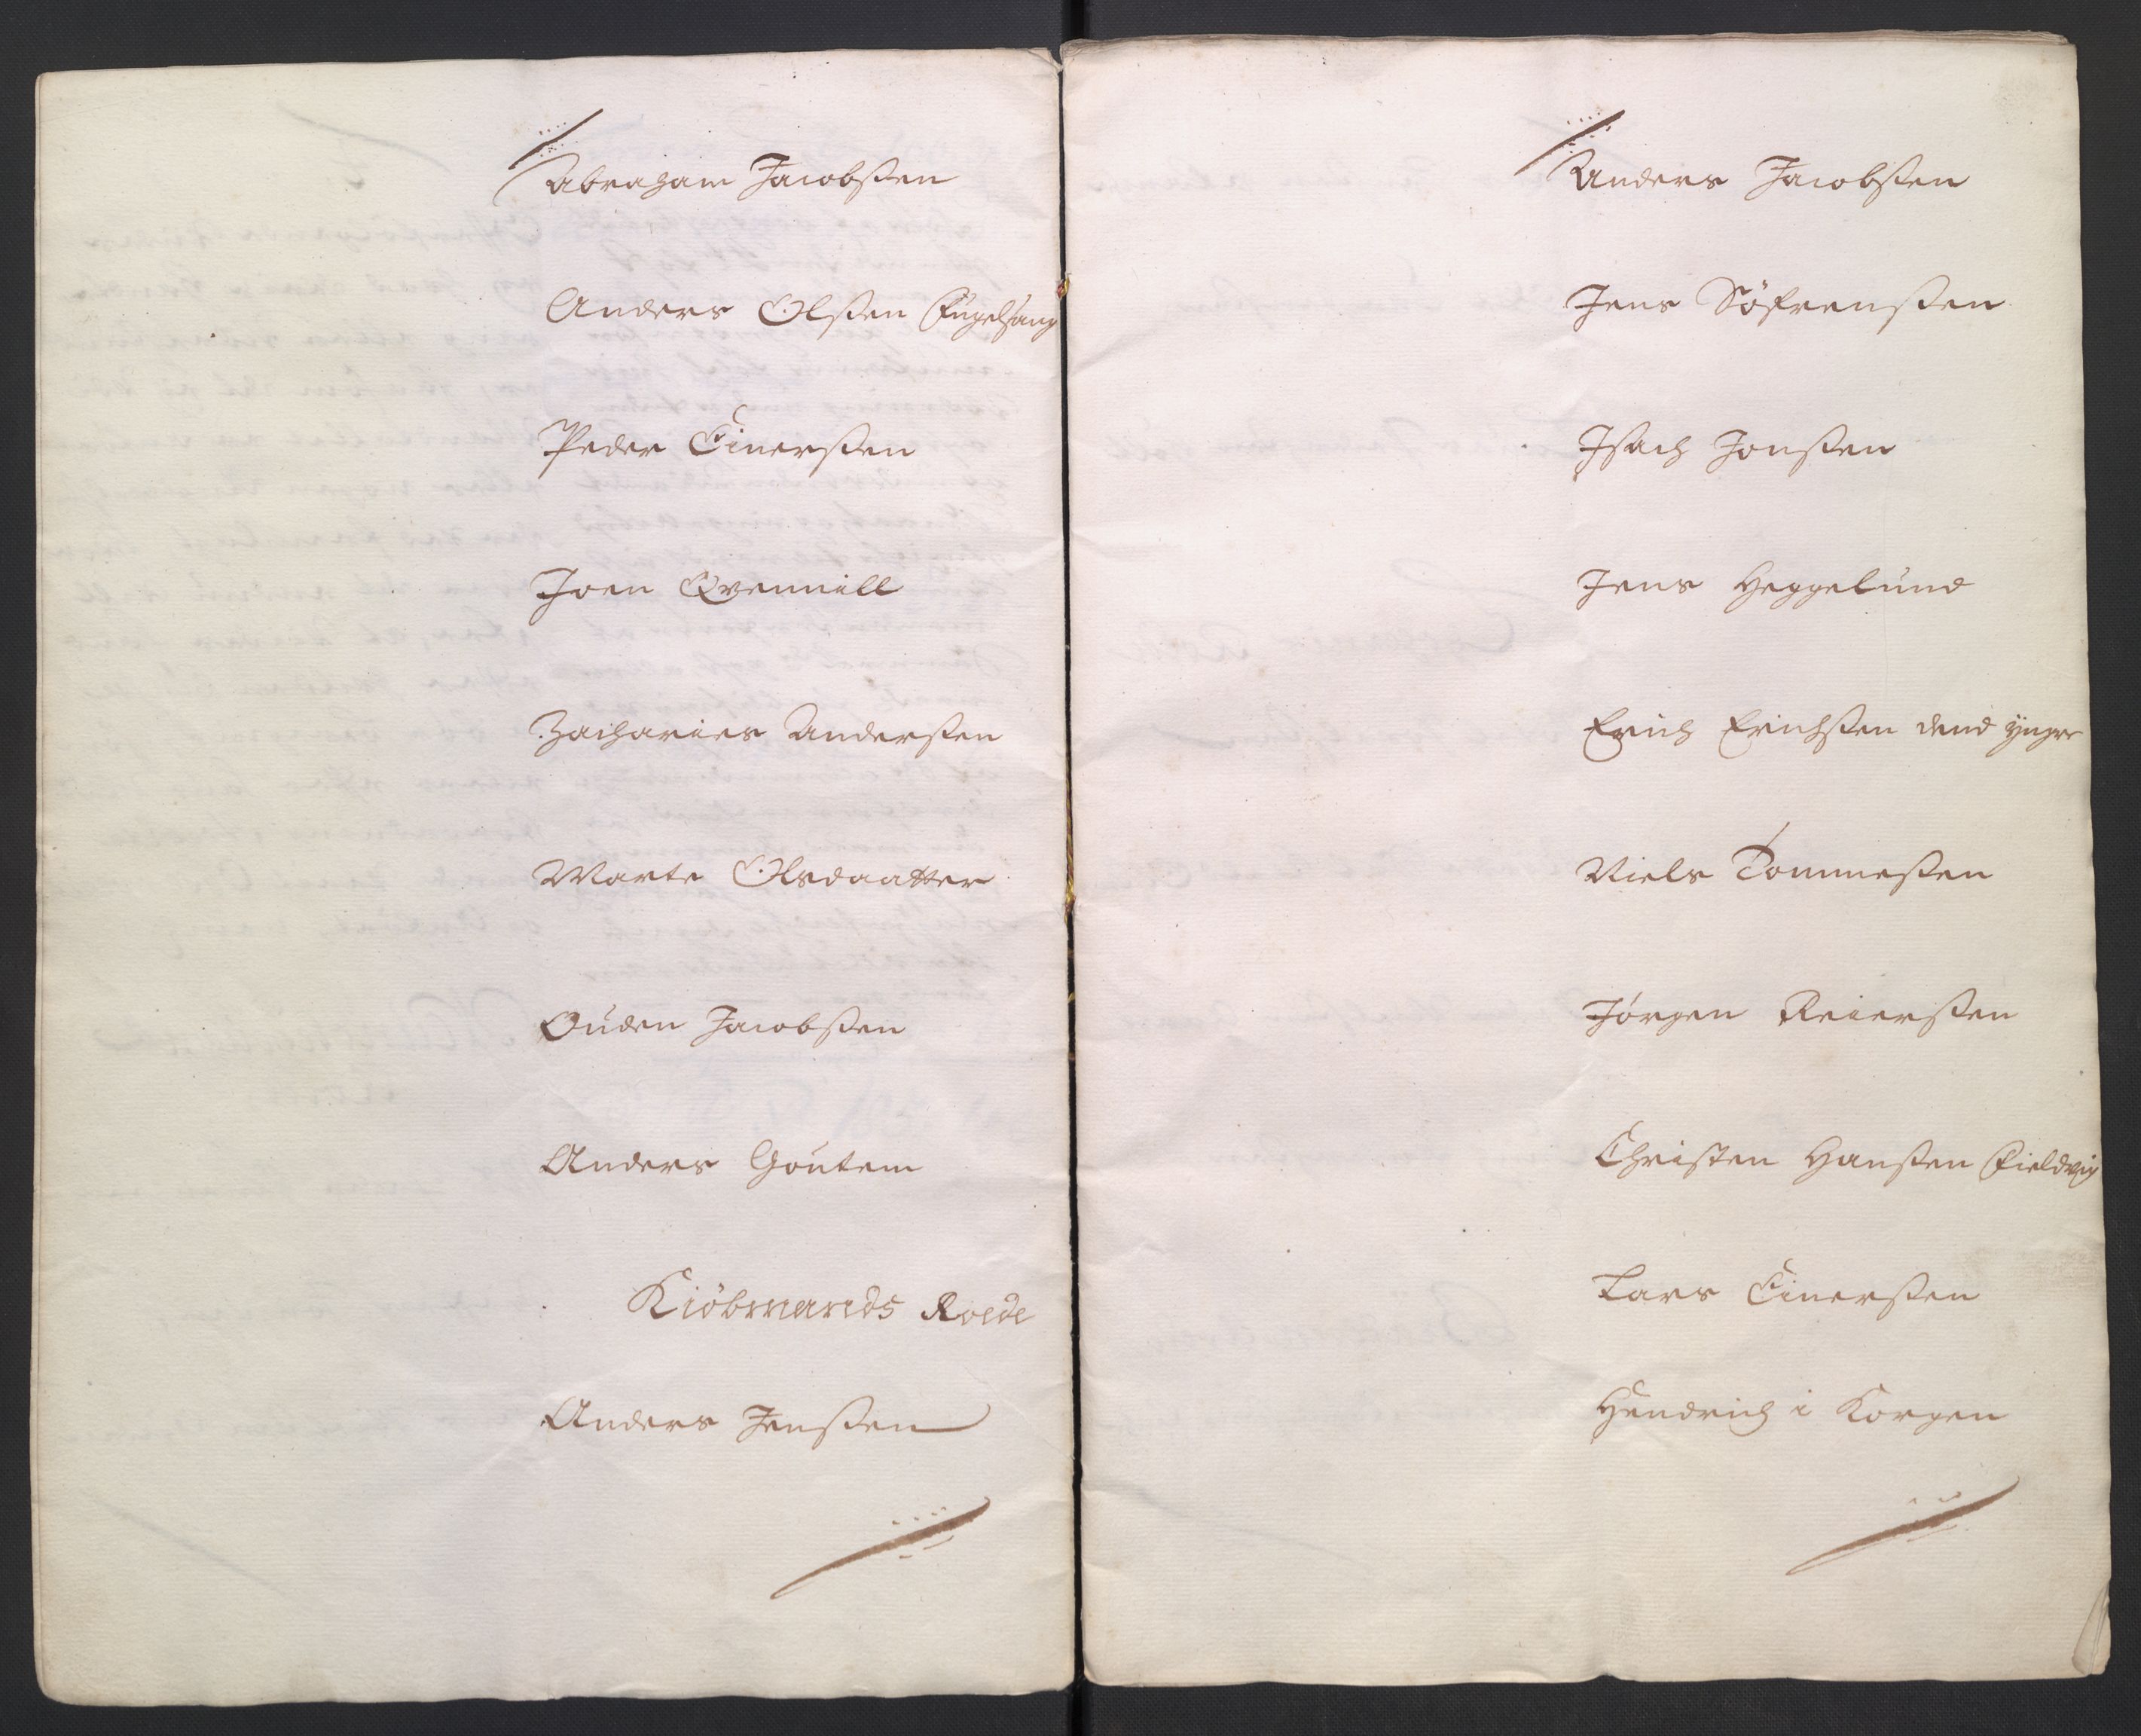 Abraham Jacobsen
Anders Olsen Fugelsang
Peder Einersen
Joen Qvennill
Zacharies Andersen
Marte Olsdaatter
Ouden Jacobsen
Anders Goutem
Kiöbmands Roede
Anders Jensen
Anders Jacobsen
Jens Söfrensen
Isach Jonsen
Jens Heggelund
Erich Erichsen dend yngre
Niels Tommesen
Jörgen Reiersen
Christen Hansen Fieldvig
Lars Einersen
Hendrich i Korgen